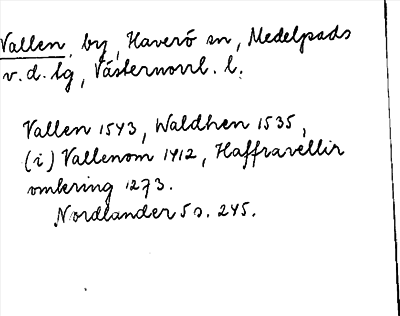 Vallen, by, Haverö sn, Medelpads
v. d. lg, Västernorrl. l.
Vallen 1543, Waldhen 1535,
(i) Vallenom 1412, Haffravellir
omkring 1273.
Nordlander 5 s. 245.